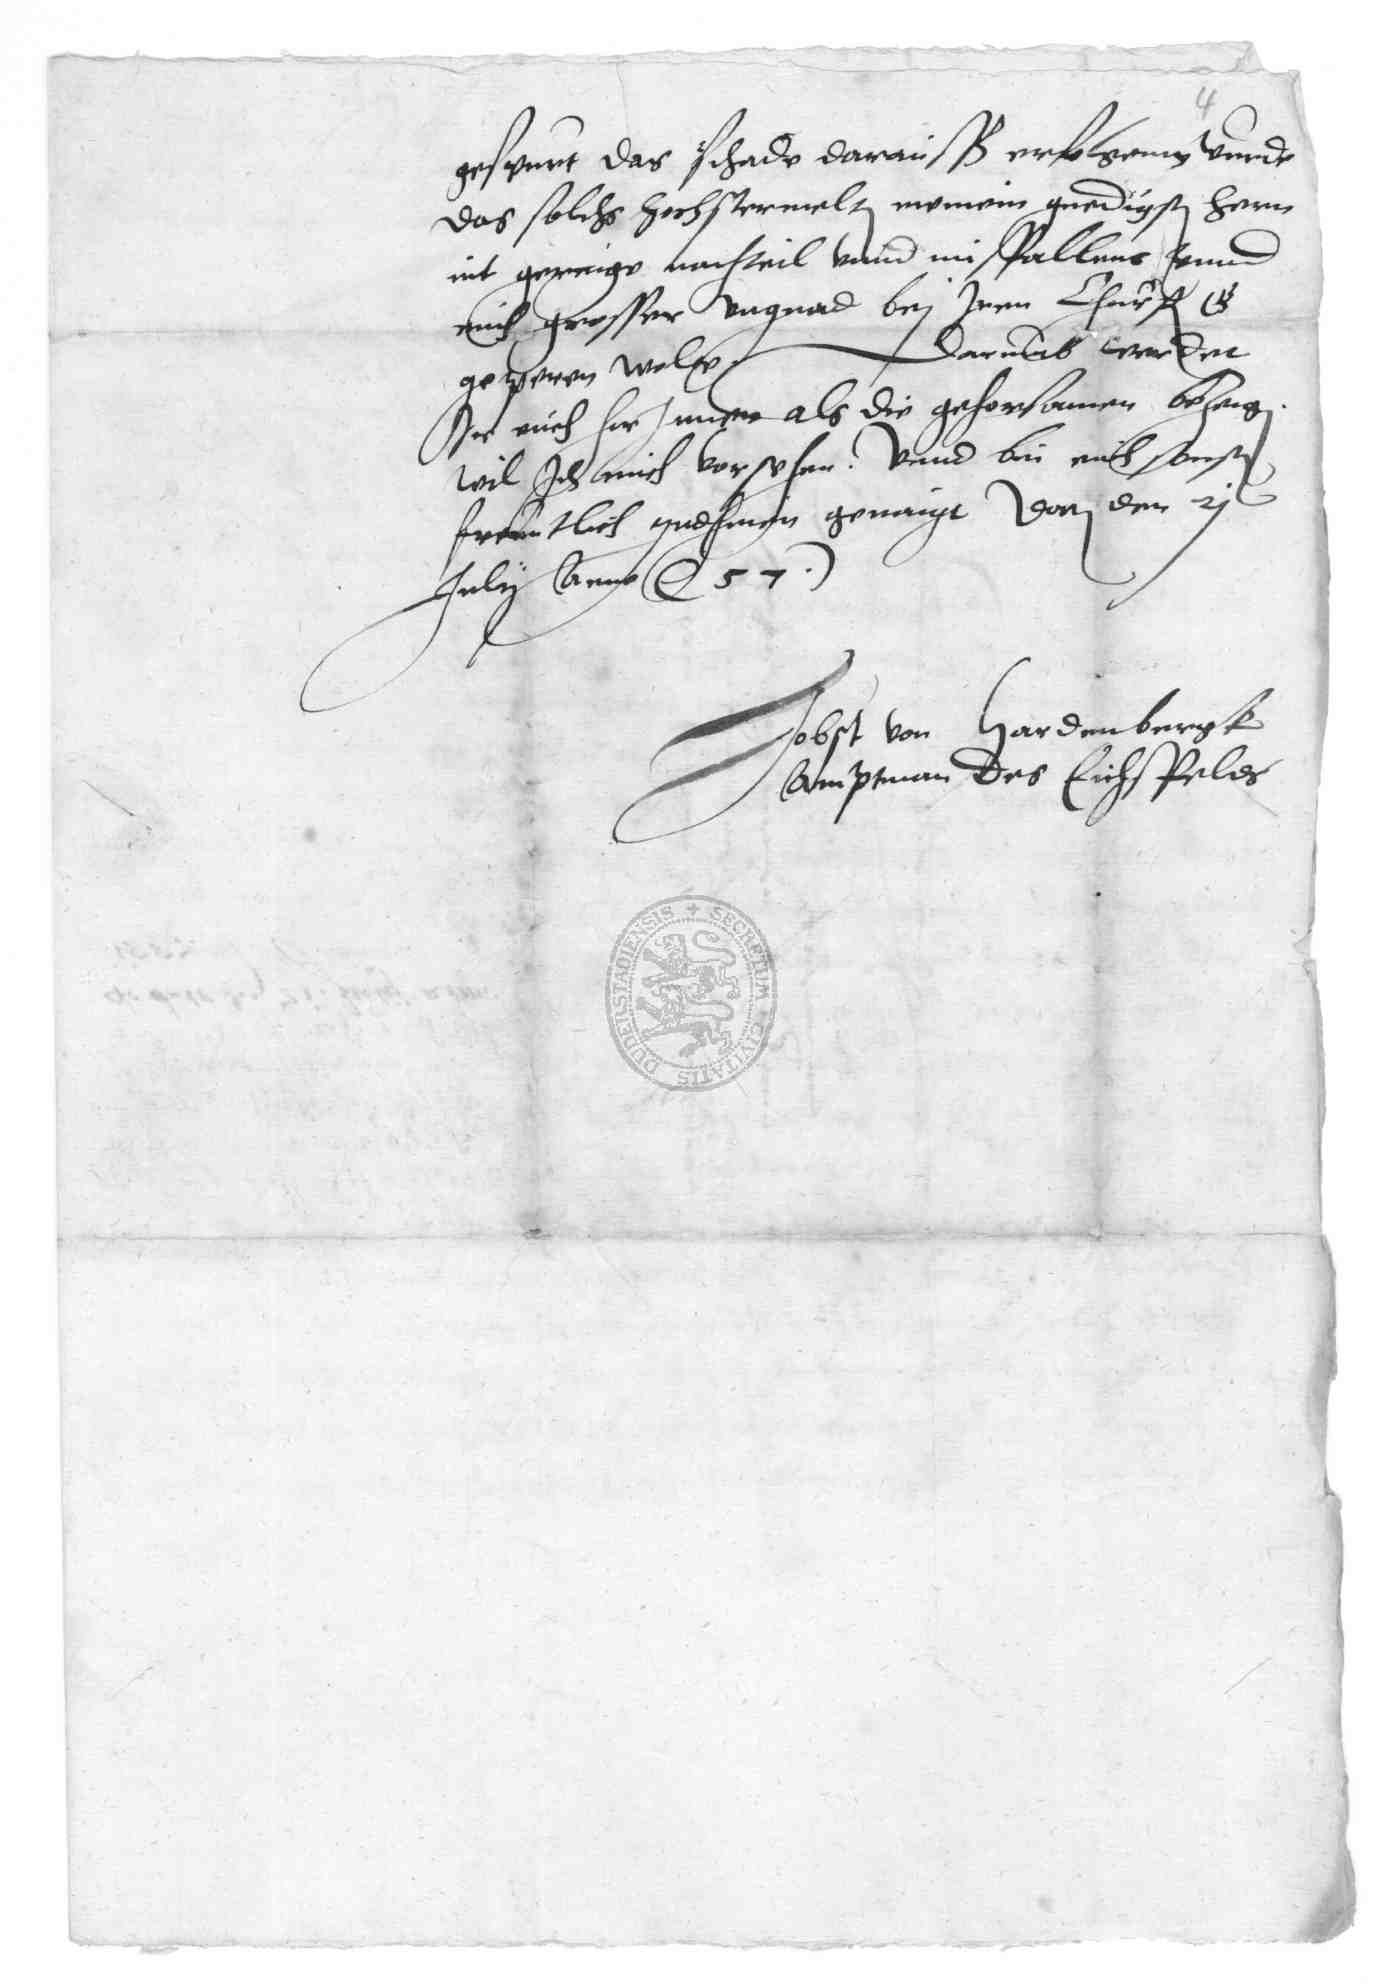 4
gespurt das schade darauß erfolgenn wurde
das solchs hochstermelt meinem gnedigsten hern
nit geringe nachteil vnnd mißfallens vnnd
euch grosser vngnad bei Iren Churf G
geperen wolt. Darumb werdet
Ir euch hir Innen als die gehorsamen
wil Ich mich vorsehen. Vnnd bin euch sonst
freuntlich geneigt Dat den 21
July Anno 57
Jobst von Hardenbergk
Amptman des Eichsfelds
SECRETUM CIVITATIS DUDERSTADIENSIS